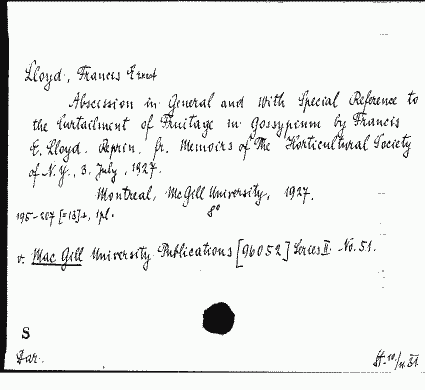 Lloyd, Francis Ernest
Abscission in General and With Special Reference to
the Curtailment of Fruitage in Gossypium by Francis
E. Lloyd. Reprin. fr. Memoirs of The Horticultural Society
of N.Y., 3. July, 1927.
Montreal, McGill University, 1927.
195-207 [=13] s., 1 pl. 8°
v. Mac Gill University Publications [96052] Series II. No. 51.
S